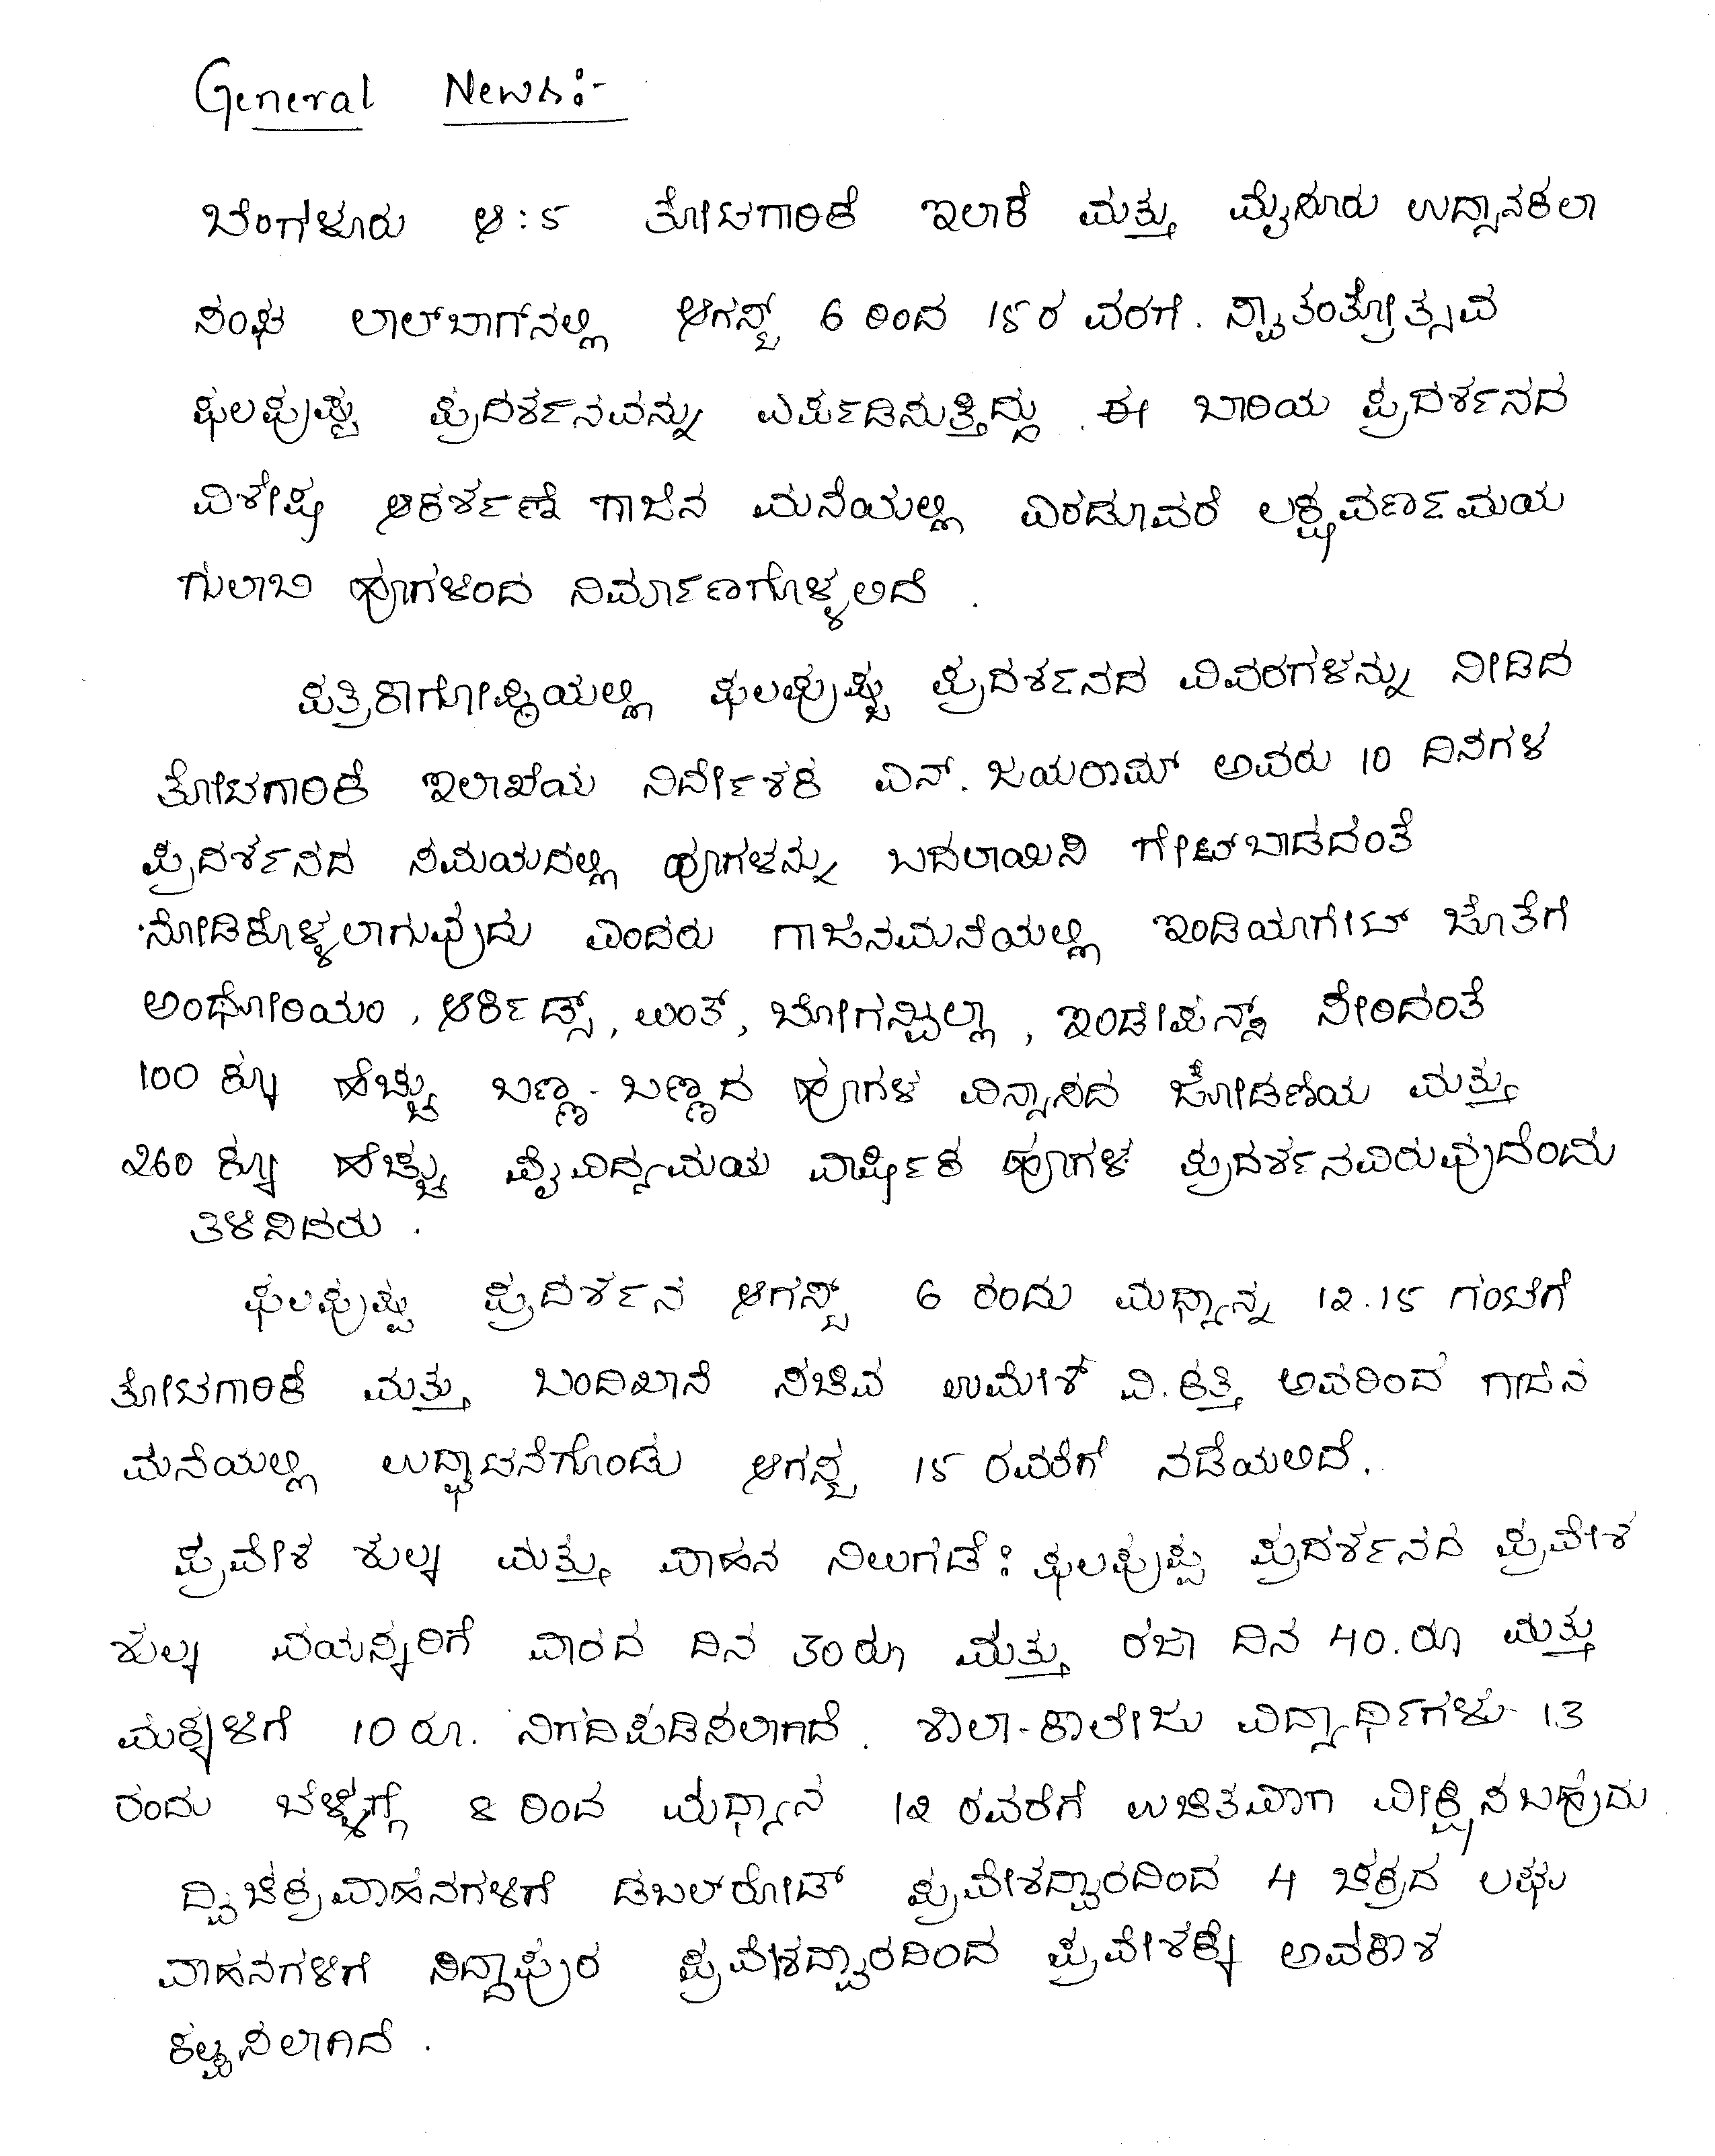 General News:-
ಬೆಂಗಳೂರು ಆ:5 ತೋಟಗಾರಿಕೆ ಇಲಾಕೆ ಮತ್ತು ಮೈಸೂರು ಉದ್ಯಾನಕಲಾ
ಸಂಘ ಲಾಲ್‌ಬಾಗ್‌ನಲ್ಲಿ ಆಗಸ್ಟ್ 6 ರಿಂದ 15 ರ ವರಗೆ. ಸ್ವಾತಂತ್ರ್ಯೋತ್ಸವ
ಫಲಪುಷ್ಪ ಪ್ರದರ್ಶನವನ್ನು ಏರ್ಪಡಿಸುತ್ತಿದ್ದು. ಈ ಬಾರಿಯ ಪ್ರದರ್ಶನದ
ವಿಶೇಷ ಆಕರ್ಶಣೆ ಗಾಜಿನ ಮನೆಯಲ್ಲಿ ಎರಡೂವರೆ ಲಕ್ಷವರ್ಣಮಯ
ಗುಲಾಬಿ ಹೂಗಳಿಂದ ನಿರ್ಮಾಣಗೊಳ್ಳಲಿದೆ .
ಪತ್ರಿಕಾಗೋಷ್ಠಿಯಲ್ಲಿ ಫಲಪುಷ್ಪ ಪ್ರದರ್ಶನದ ವಿವರಗಳನ್ನು ನೀಡಿದ
ತೋಟಗಾರಿಕೆ ಇಲಾಖೆಯ ನಿರ್ದೇಶಕ ಎನ್. ಜಯರಾಮ್ ಅವರು 10 ದಿನಗಳ
ಪ್ರದರ್ಶನದ ಸಮಯದಲ್ಲಿ ಹೂಗಳನ್ನು ಬದಲಾಯಿಸಿ ಗೇಟ್‌ಬಾಡದಂತೆ
ನೋಡಿಕೊಳ್ಳಲಾಗುವುದು ಎಂದರು ಗಾಜಿನಮನೆಯಲ್ಲಿ ಇಂಡಿಯಾಗೇಟ್ ಜೊತೆಗೆ
ಅಂಥೋರಿಯಂ, ಆರ್ಕಿಡ್ಸ್, ಲಂಕ್, ಬೋಗನ್ವಿಲ್ಲಾ, ಇಂಡೀಪನ್ಸ್ ಸೇರಿದಂತೆ
100 ಕ್ಕೂ ಹೆಚ್ಚು ಬಣ್ಣ-ಬಣ್ಣದ ಹೂಗಳ ವಿನ್ಯಾಸದ ಜೋಡಣೆಯ ಮತ್ತು
260 ಕ್ಕೂ ಹೆಚ್ಚು ವೈವಿದ್ಯಮಯ ವಾರ್ಷಿಕ ಹೂಗಳ ಪ್ರದರ್ಶನವಿರುವುದೆಂದು
ತಿಳಿಸಿದರು .
ಫಲಪುಷ್ಪ ಪ್ರದರ್ಶನ ಆಗಸ್ಟ್ 6 ರಂದು ಮಧ್ಯಾನ್ನ 12.15 ಗಂಟೆಗೆ
ತೋಟಗಾರಿಕೆ ಮತ್ತು ಬಂದಿಖಾನೆ ಸಚಿವ ಉಮೇಶ್ ವಿ.ಕತ್ತಿ ಅವರಿಂದ ಗಾಜಿನ
ಮನೆಯಲ್ಲಿ ಉದ್ಘಾಟನೆಗೊಂಡು ಆಗಸ್ಟ 15 ರವರೆಗೆ ನಡೆಯಲಿದೆ.
ಪ್ರವೇಶ ಶುಲ್ಕ ಮತ್ತು ವಾಹನ ನಿಲುಗಡೆ: ಫಲಪುಷ್ಪ ಪ್ರದರ್ಶನದ ಪ್ರವೇಶ
ಶುಲ್ಕ ವಯಸ್ಕರಿಗೆ ವಾರದ ದಿನ 30ರೂ ಮತ್ತು ರಜಾ ದಿನ 40.ರೂ ಮತ್ತು
ಮಕ್ಕಳಿಗೆ 10 ರೂ. ನಿಗದಿಪಡಿಸಲಾಗಿದೆ. ಶಾಲಾ-ಕಾಲೇಜು ವಿದ್ಯಾರ್ಥಿಗಳು 13
ರಂದು ಬೆಳ್ಳಿಗ್ಗೆ 8 ರಿಂದ ಮಧ್ಯಾನ 12 ರವರೆಗೆ ಉಚಿತವಾಗಿ ವೀಕ್ಷಿಸಬಹುದು
ದ್ವಿಚಕ್ರವಾಹನಗಳಿಗೆ ಡಬಲ್‌ರೋಡ್ ಪ್ರವೇಶದ್ವಾರದಿಂದ 4 ಚಕ್ರದ ಲಘು
ವಾಹನಗಳಿಗೆ ಸಿದ್ದಾಪುರ ಪ್ರವೇಶದ್ವಾರದಿಂದ ಪ್ರವೇಶಕ್ಕೆ ಅವಕಾಶ
ಕಲ್ಪಸಲಾಗಿದೆ .